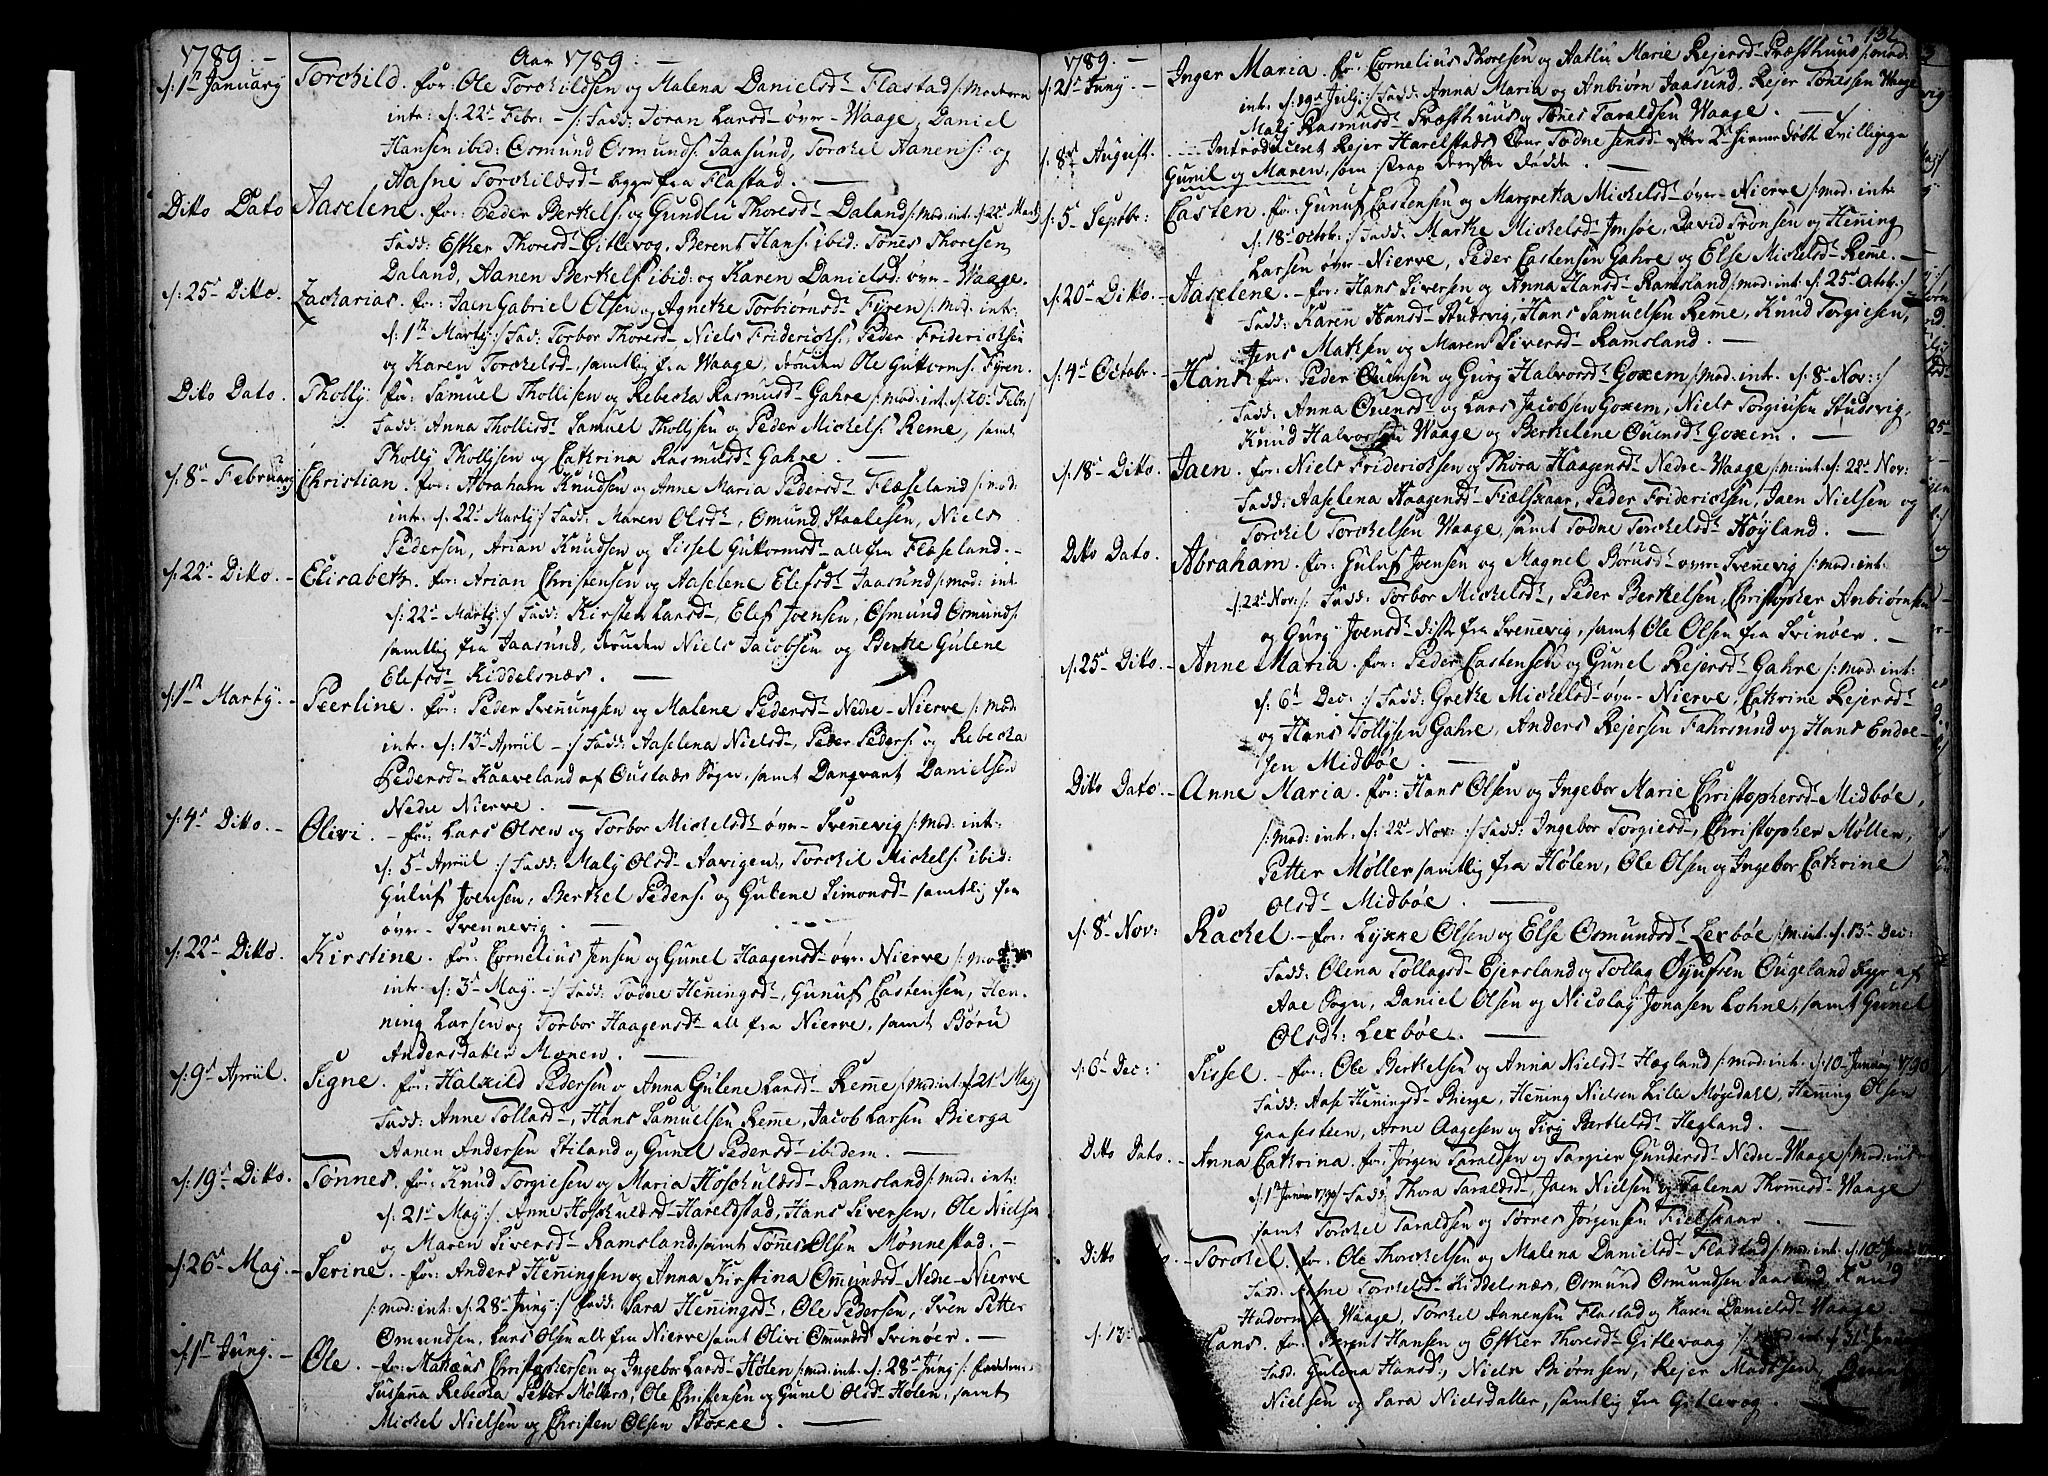 1789. –
Aar 1789: –
s: 1te January
Torchild. for: Ole Torchildsen og Malena Danielsd: Flastad /: Moderen
intr: s: 22de Febr: – :/ Fadd: Toran Larsd: øvr – Waage, Daniel
Hansen ibid: Osmund Osmunds: Jaasund, Torchel Aanens: og
Aasne Torchildsd – begge fra Flastad. –
Ditto Dato
Aaselene. for: Peder Berkels: og Gundlu Thoresd – Daland /: mod: int: s: 22de Marty
Fadd: Esther Thoresd – Gitlevog, Berent Hans: ibid: Tønes Thoresen
Daland, Aanen Berkels: ibid: og Karen Danielsd: øvr – Waage.
s: 25de Ditto.
Zacharias. for: Jaen Gabriel Olsen og Agnethe Torbiørnsd – Fyren /: Mod: int:
s: 1te Marty :/ Fad: Torbor Thoresd – Niels Friderichs:, Peder Friderichsen
og Karen Torchelsd –, samtlig fra Waage, foruden Ole Guttorms: Fyren.
Ditto Dato.
Tholly. for: Samuel Thollisen og Rebecka Rasmusd – Gahre /: mod: int: s: 20de Febr:/
Fadd: Anna Thollisd – Samuel Thollysen og Peder Mickels: Reme, samt
Tholly Thollysen og Catrina Rasmusd – Gahre. –
s: 8de February
Christian. for: Abraham Knudsen og Anne Maria Pedersd – Flæseland /: mod:
intr: s: 22de Marty :/ Fadd: Maren Olsd –, Omund Staalesen, Niels
Pedersen, Arian Knudsen og Sissel Guttormsd – all fra Flæseland. –
s: 22de Ditto. –
Elisabeth. for: Arian Christensen og Aaselene Elefsd – Jaasund /: mod: int:
s: 22de Marty :/ Fadd: Kirsten Larsd –, Elef Joensen, Osmund Osmunds:
samtlig fra Jaasund, foruden Niels Jacobsen og Berthe Gulene
Elefsd – Kiddelsnæs. –
s: 1te Marty. –
Peerline. for: Peder Svennungsen og Malene Pedersd – Nedre – Nierve /: mod:
intr. s: 13de Apriil – :/ Fadd: Aaselena Nielsd –, Peder Peders: og Rebecka
Pedersd – Kaaveland af Oustads Sogn, samt Danqvart Danielsen
Nedre Nierve. –
s: 4de Ditto. –
Olivi. – for: Lars Olsen og Torbor Mickelsd – øvr – Svennevig /: mod: int:
s: 5te Apriil :/ Fadd: Maly Olsd – Aavigen, Torchil Mickels: ibid:
Guluf Joensen, Berthel Peders: og Gulene Simonsd – samtlig fra
øvr – Svennevig. –
s: 22de Ditto.
Kirstine. for: Cornelius Jensen og Gunel Haagensd – øvr: Nierve /: mod:
intr. s: 3de May – :/ Fadd: Todne Heningsd –, Gunuf Castensen, Hen-
ning Larsen og Torbor Haagensd – all fra Nierve, samt Børu
Andersdatter Monen. –
s: 9de Apriil.
Signe. for: Halxild Pedersen og Anna Gulene Larsd – Reme /: mod: int: s: 21de May
Fadd: Anne Tollasd –, Hans Samuelsen Reme, Jacob Larsen Bierga
Aanen Andersen Stiland og Gunel Pedersd – ibidem. –
s: 19de Ditto.
Tønnes. for: Knud Torgiesen og Maria Høschuldsd – Ramsland /: mod: int:
s: 21de May :/. Anne Høschuldsd – Hareldstad, Hans Sivensen, Ole Nielsen
og Maren Siversd – Ramsland, samt Tønes Olsen Mønnestad. –
s: 26de May. –
Serine. – for: Anders Henningsen og Anna Kirstina Omundsd – Nedre – Nierve
/: mod: int: s: 28de Juny :/ Fadd: Sara Heningsd –, Ole Pedersen, Sven Petter
Omundsen, Lars Olsen alle fra Nierve, samt Olivi Omundsd Svinøer. –
s: 1te Juny. –
Ole. – for: Mathæus Christophersen og Ingebor Larsd – Holen /: mod: int: s: 28de Juny :/
Susanna Rebecka Petter Møllers, Ole Christensen og Gunel Olsd – Holen, samt
Mickel Nielsen og Christen Olsen Støkke. –
1789. –
132
s: 21de Juny. –
Inger Maria. for: Cornelius Thoresen og Aatlu Marie Rejersd – Præsthuus /: mod:
int: s: 19de July :/ Fadd: Anna Maria og Anbiørn Jaasund, Rejer Tønessen Waage
Maly Rasmusd – Præsthuus og Tønes Taraldsen Waage. –
s: 8de August.
Introduceret Rejer Harelstads Kone Todne Jensd – efter 2de hiemedøbte Tvillinger
Gunil og Maren, som strax derefter døde. –
s: 5te Septbr:
Casten. for: Gunuf Castensen og Margretha Mickelsd – øvr – Nierve /: mod: int:
s: 18de Octobr: :/ Fadd: Marthe Mickelsd – Imsøe, David Tronsen og Hening
Larsen øvr – Nierve, Peder Castensen Gahre og Else Mickelsd – Reme. –
s: 20de Ditto. –
Aaselene. – for: Hans Siversen og Anna Hansd – Ramsland /: mod: int: s: 25de Octbr: :/
Fadd: Karen Hansd – Studsvig, Hans Samuelsen Reme, Knud Torgiesen,
Jens Matsen og Maren Siversd – Ramsland. –
s: 4de Octobr. –
Hans. for: Peder Ouensen og Gurg Halvorsd – Goxem /: mod: int. s: 8de Nov: :/
Fadd: Anna Ouensd – og Lars Jacobsen Goxem, Niels Torgiusen Studsvig,
Knud Halvorsen Waage og Berthelene Ouensd – Goxem. –
s: 18de Ditto.
Jaen. for: Niels Friderichsen og Thora Haagensd – Nedre – Waage /: m: int: s: 22de Nov:
Fadd: Aaselena Haagensd – Fielskaar, Peder Friderichsen, Jaen Nielsen og
Torchil Torchelsen Waage, samt Todne Torchelsd – Høyland. –
Ditto Dato.
Abraham. for: Guluf Joensen og Magnel Børusd – øvre – Svenevig /: mod: int:
s: 22de Nov: :/ Fadd: Torbor Mickelsd –, Peder Berthelsen, Christopher Anbiørnsen
og Gurg Joensd – disse fra Svennevig, samt Ole Olsen fra Svinøer. –
s: 25de Ditto. –
Anne Maria. for: Peder Castensen og Gunel Rejersd – Gahre /: mod: int:
s: 6te Dec: :/ Fadd: Grethe Mickelsd – øvr – Nierve, Catrine Rejersd –
og Hans Tollysen Gahre, Anders Rejersen Fahrsund og Hans Endre-
sen Midbøe. –
Ditto Dato. –
Anne Maria. for: Hans Olsen og Ingebor Marie Christophersd – Midbøe,
/: mod: int: s: 22de Nov: :/ Fadd: Ingebor Torgiesd –, Christopher Møller,
Petter Møller samtlig fra Holen, Ole Olsen og Ingebor Catrine
Olsd – Midbøe. –
s: 8de Nov:
Rachel. – for: Lykke Olsen og Else Osmundsd – Lexbøe /: m: int: s: 13de Dec:
Fadd: Olena Tollagsd – Ejersland og Tollag Oyufsen Ougeland begge af
Aae Sogn, Daniel Olsen og Nicolay Jonasen Lohne, samt Gunel
Olsd: Lexbøe. –
s: 6te Dec:
Sissel. – for: Ole Berthelsen og Anna Nielsd – Hægland /: mod: int: s: 10de January 1790
Fadd: Aase Heningsd – Bierge, Hening Nielsen Lille Møgedahl, Hening Olsen
Gaasesteen, Arne Aagesen og Siri Berthelsd – Hegland. –
Ditto Dato. –
Anna Catrina. for: Jørgen Taraldsen og Targier Gundersd – Nedre – Waage /: mod: int:
s: 1te Januar 1790 :/ Fadd: Thora Taraldsd –, Jaen Nielsen og Talena Thomesd – Waage
samt Torchel Taraldsen og Tørres Jørgensen Fielskaar. –
Ditto Dato –
Torchel. for: Ole Thorchelsen og Malena Danielsd – Flastad /: mod: int. s: 10de
Fadd: Aasne Torchelsd – Kiddelsnæs, Osmund Osmundsen Jaasund, Knud
Hadornsen Waage, Torchel Aanensen Flastad og Karen Danielsd – Waage. –
s: 13de
Hans. for: Berent Hansen og Esther Thoresd – Gitlevaag /: mod: int: s: 31te
Fadd: Gulena Hansd:, Niels Biørnsen, Rejer Madtsen, Berent
Nielsen og Sara Nielsdatter, samtlig fra Gitlevog. –